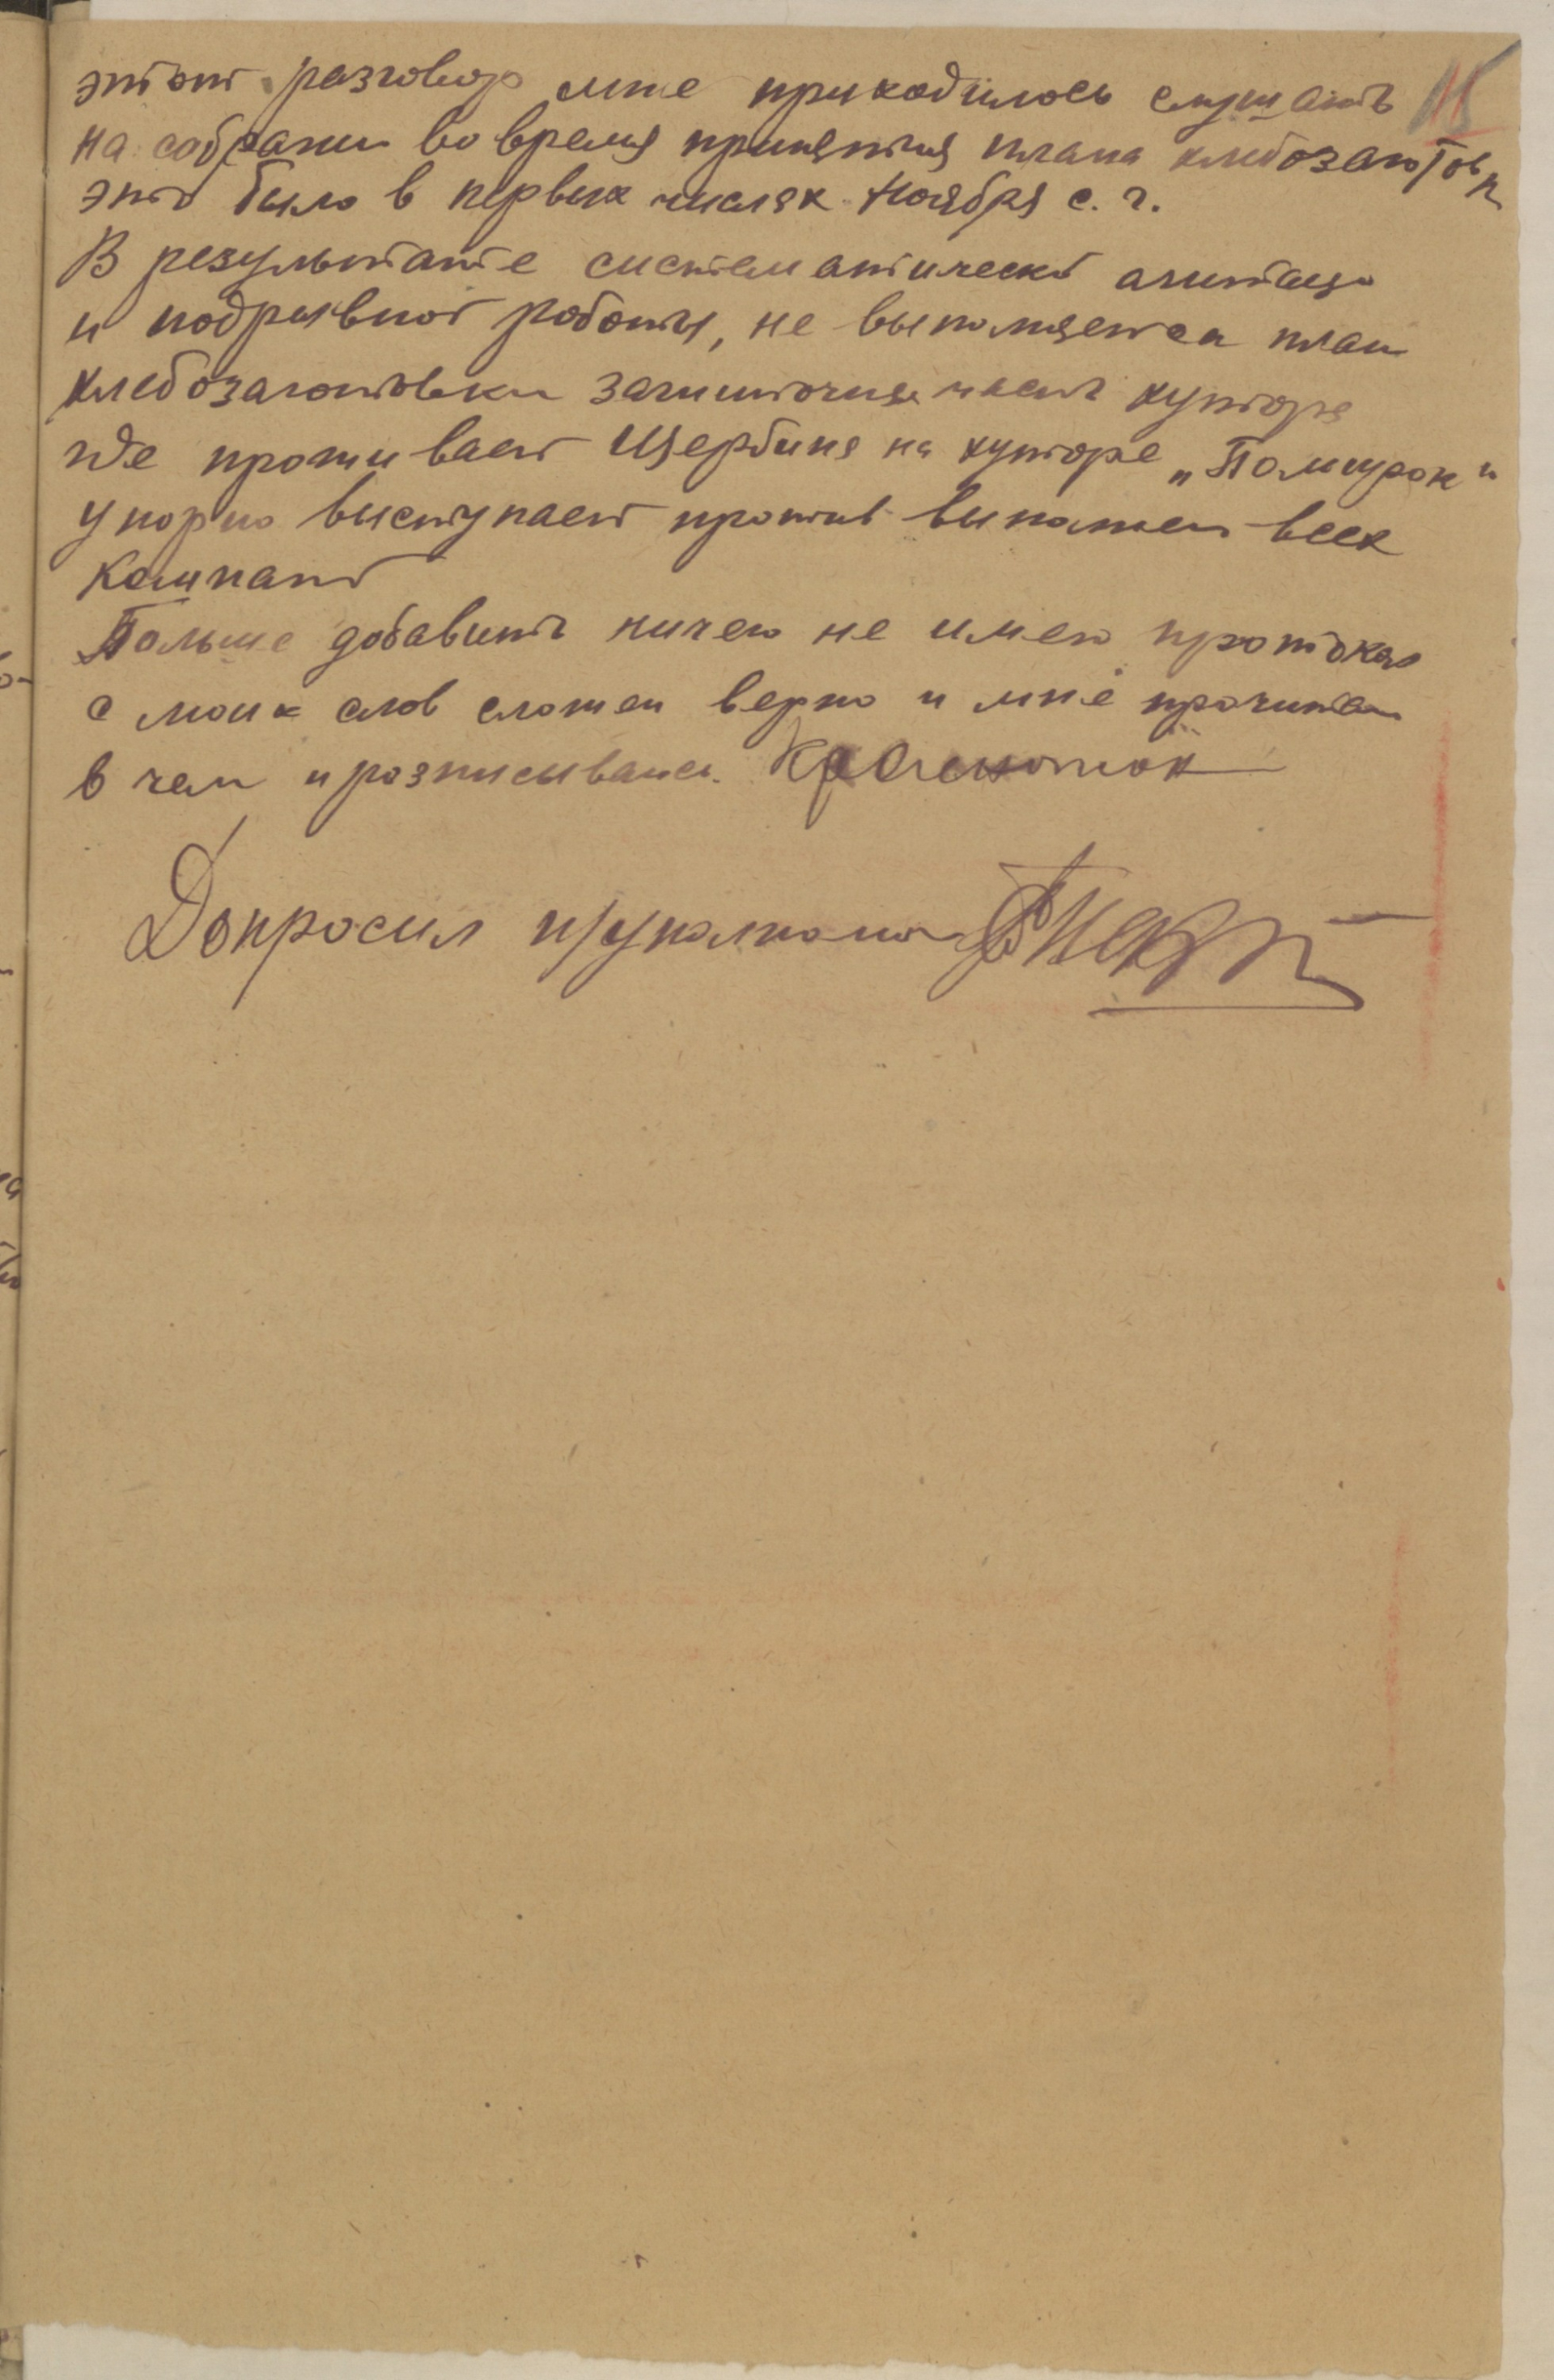 15
этот разговор мне приходилось слушать
на собрани во время принятия плана хлебозаготовк
это было в первых числях Ноября с. г.
В результате систематической агитаци
и подрывной роботы, не выполняется план
хлебозаготовки значительная часть хутора
где проживает Щербина на хуторе „
упорно выступает против выполнен всех
компаний
Больше добавить ничего не имею протокол
с моих слов сложен верно и мне прочитан
в чем и розписываюсь.
Допросил